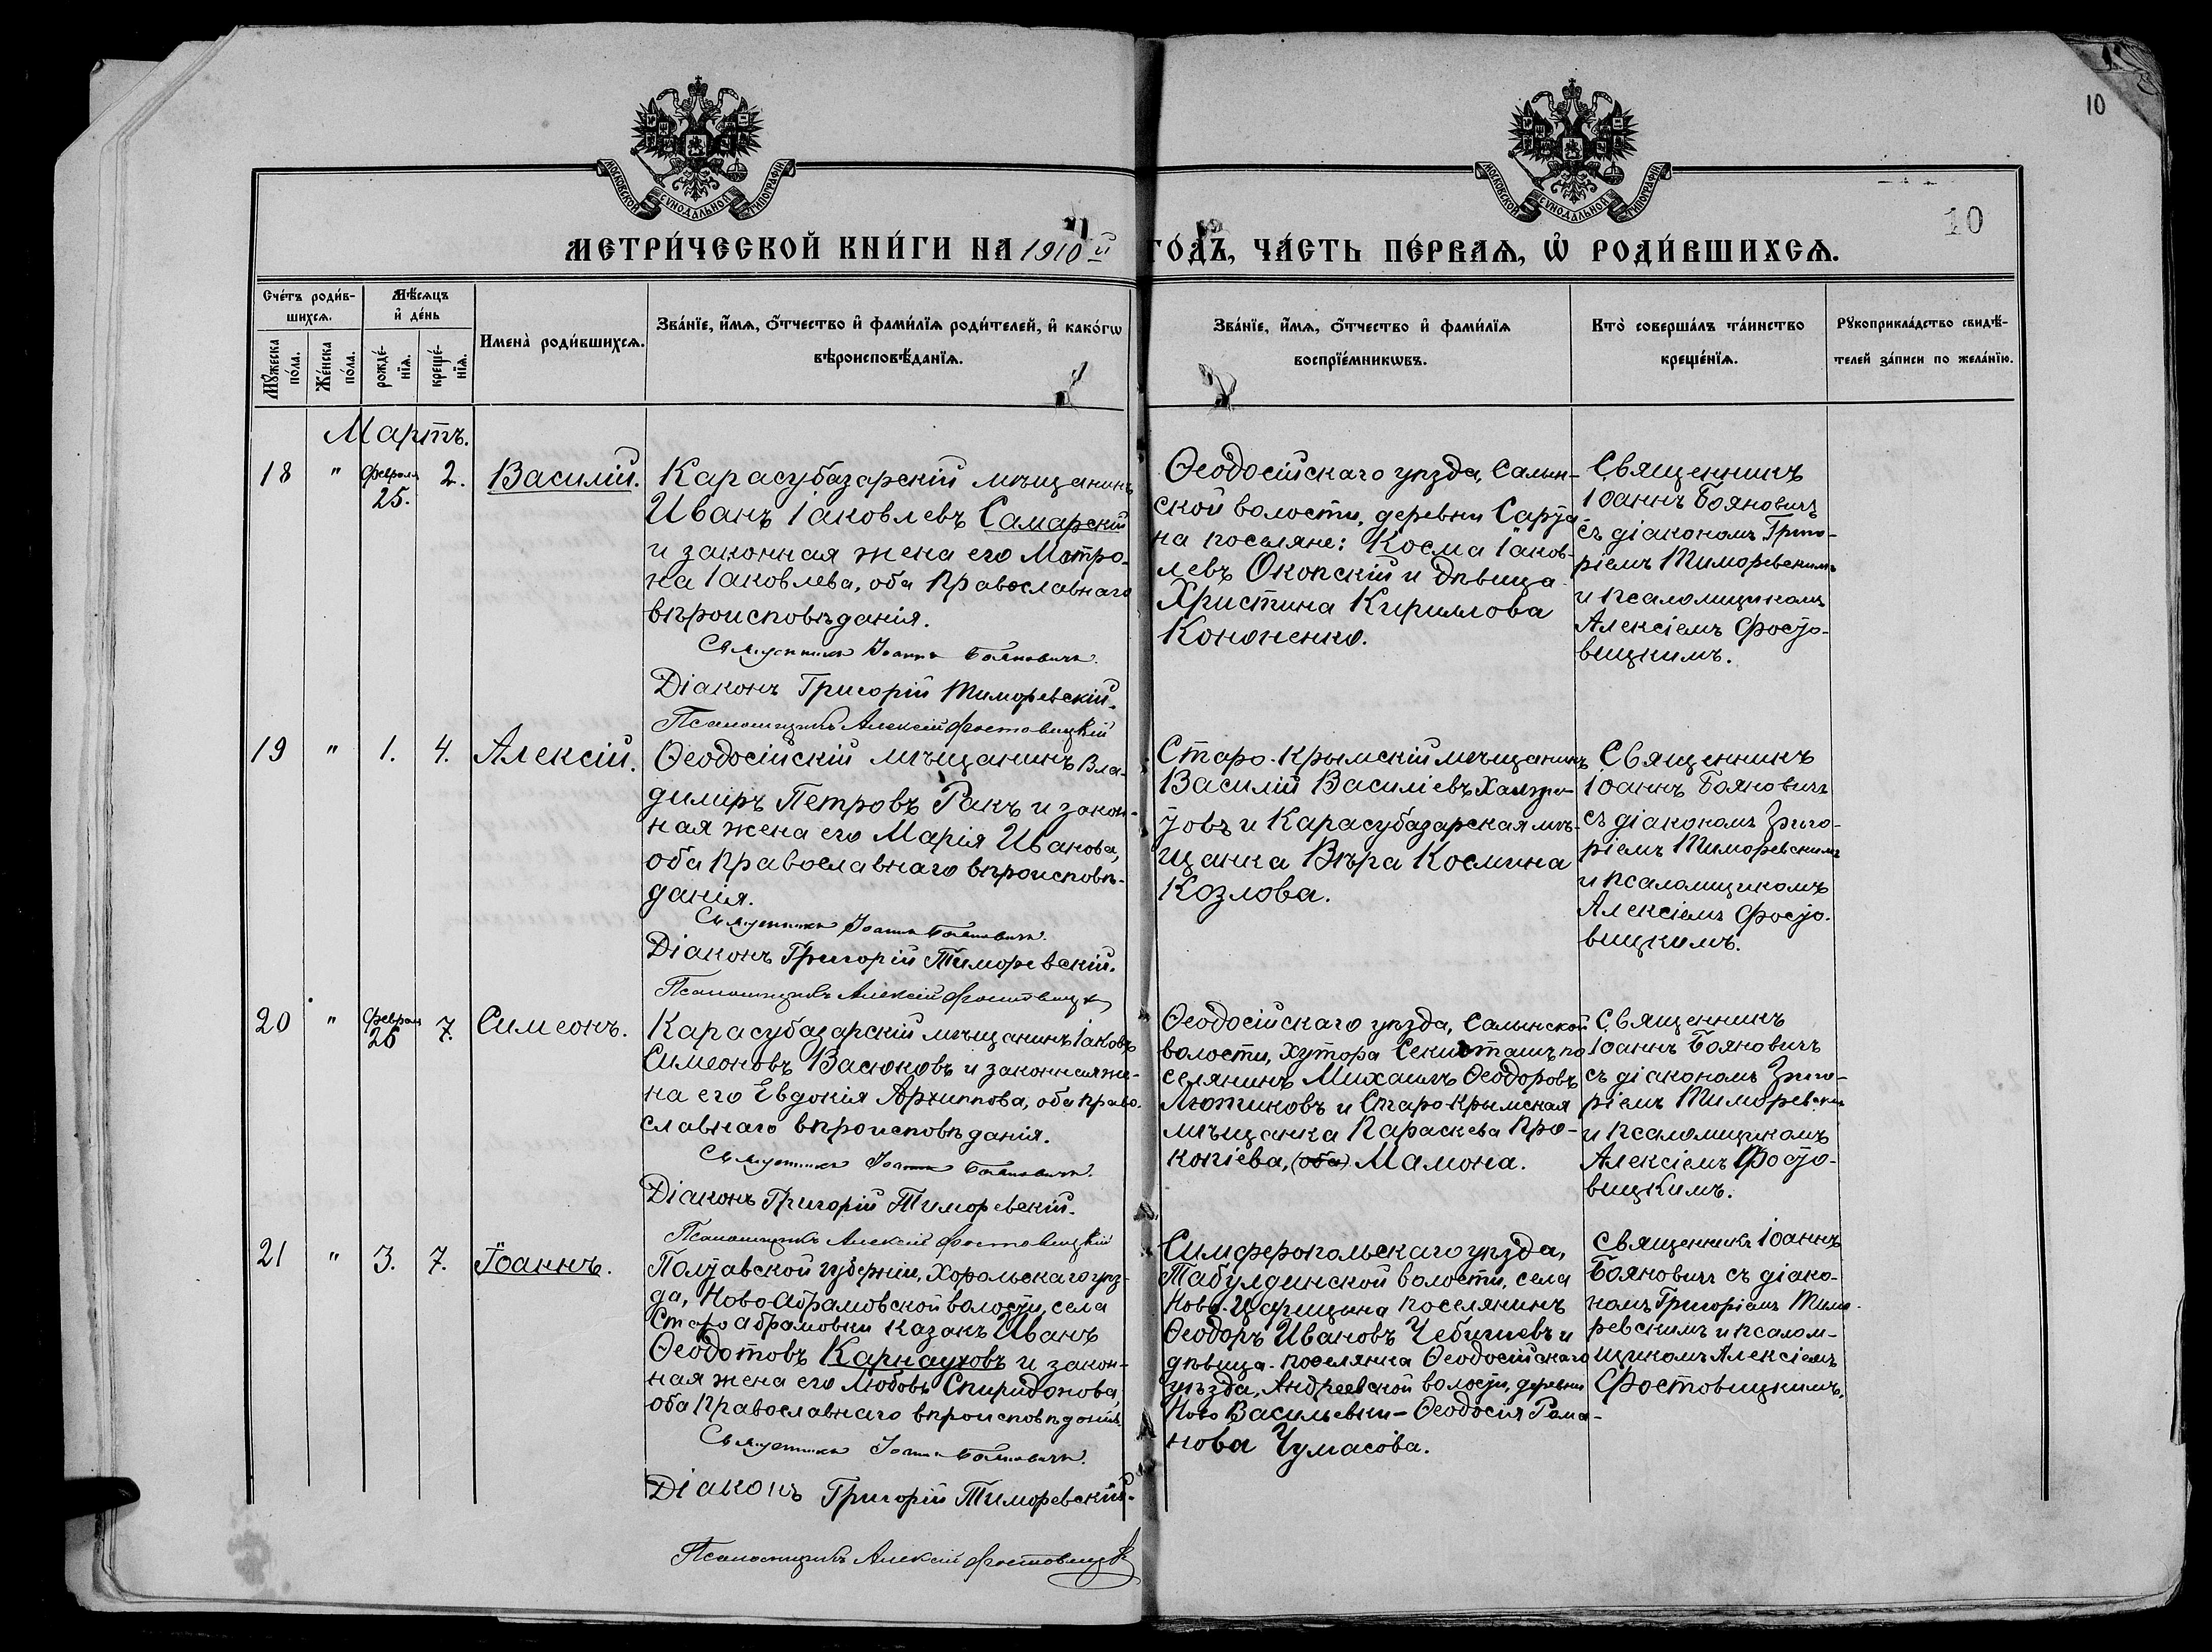 10
10
МОСКОВСКОЙ СѴНОДАЛЬНОЙ ТИПОГРАФІИ
МОСКОВСКОЙ СѴНОДАЛЬНОЙ ТИПОГРАФІИ
МЕТРИ́ЧЕСКОЙ КНИ́ГИ НА 1910й ГО́ДЪ, ЧА́СТЬ ПЕ́РВАѦ, Ѡ РОДИ́ВШИХСѦ.
Сче́тъ роди́в-
шихсѧ.
Мѣ́сѧцъ
и҆ де́нь
Мꙋ́жеска
по́ла.
Же́нска
по́ла.
рожде́-
нїѧ.
креще́-
нїѧ.
Имена̀ роди́вшихсѧ.
Зва́нїе, и҆́мѧ, ѻ҆́тчество и҆ фами́лїѧ роди́телей, и҆ како́гѡ
вѣроисповѣ́данїѧ.
Зва́нїе, и҆́мѧ, ѻ҆́тчество и҆ фами́лїѧ
воспрїе́мникѡвъ.
Кто̀ соверша́лъ та́инство
креще́нїѧ.
Рꙋкоприкла́дство свидѣ́-
телей за́писи по жела́нїю.
Мартъ.
18 " Февраля 25. 2. Василій.
Карасубазарскій мѣщанинъ
Иванъ Іаковлевъ Самарскій
и законная жена его Матро-
на Іаковлева, оба православнаго
вѣроисповѣданія.
Священникъ Іоаннъ Бояновичъ.
Діаконъ Григорій Тиморевскій.
Псаломщикъ Алексій Фостовицкій
Ѳеодосійскаго уѣзда, Салын-
ской волости, деревни Сару
на поселяне: Косма Іаков-
левъ Окопскій и дѣвица
Христина Кириллова
Кононенко.
Священникъ
Іоаннъ Бояновичъ
съ діакономъ Григо-
ріемъ Тиморевскимъ
и псаломщикомъ
Алексіемъ Фосто-
вицкимъ.
19 " 1. 4. Алексій.
Ѳеодосійскій мѣщанинъ Вла-
диміръ Петровъ Ракъ и закон-
ная жена его Марія Иванова,
оба православнаго вѣроисповѣ-
данія.
Священникъ Іоаннъ Бояновичъ.
Діаконъ Григорій Тиморевскій.
Псаломщикъ Алексій Фостовицкій
Старо-Крымскій мѣщанинъ
Василій Василіевъ
и Карасубазарская мѣ-
щанка Вѣра Космина
Козлова.
Священникъ
Іоаннъ Бояновичъ
съ діакономъ Григо-
ріемъ Тиморевскимъ
и псаломщикомъ
Алексіемъ Фосто-
вицкимъ.
20 " Февраля 26 7. Симеонъ.
Карасубазарскій мѣщанинъ Іаковъ
Симеоновъ Васюковъ и законная же-
на его Евдокія Архиппова, оба право-
славнаго вѣроисповѣданія.
Священникъ Іоаннъ Бояновичъ.
Діаконъ Григорій Тиморевскій.
Псаломщикъ Алексій Фостовицкій
Ѳеодосійскаго уѣзда, Салынской
волости, хутора по
селянинъ Михаилъ Ѳеодоровъ
Лютиковъ и Старо-Крымская
мѣщанка Параскева Про-
копіева, (оба) Мамона.
Священникъ
Іоаннъ Бояновичъ
съ діакономъ Григо-
ріемъ Тиморевскимъ
и псаломщикомъ
Алексіемъ Фосто-
вицкимъ.
21 " 3. 7. Іоаннъ.
Полтавской губерніи, Хорольскаго уѣз-
да, Ново-Абрамовской волости, села
Старо Абрамовки казакъ Иванъ
Ѳеодотовъ Карнауховъ и закон-
ная жена его Любовь Спиридонова
оба православнаго вѣроисповѣданія
Священникъ Іоаннъ Бояновичъ.
Діаконъ Григорій Тиморевскій.
Псаломщикъ Алексій Фостовицкій
Симферопольскаго уѣзда,
Табулдинской волости, села
Ново-Царицына поселянинъ
Ѳеодоръ Ивановъ Чебышевъ и
дѣвица-поселянка Ѳеодосійскаго
уѣзда, Андреевской волости, деревни
Ново Васильевки – Ѳеодосія Рома-
нова Чумасова.
Священникъ Іоаннъ
Бояновичъ съ діако-
номъ Григоріемъ Тимо-
ревскимъ и псалом-
щикомъ Алексіемъ
Фостовицкимъ.